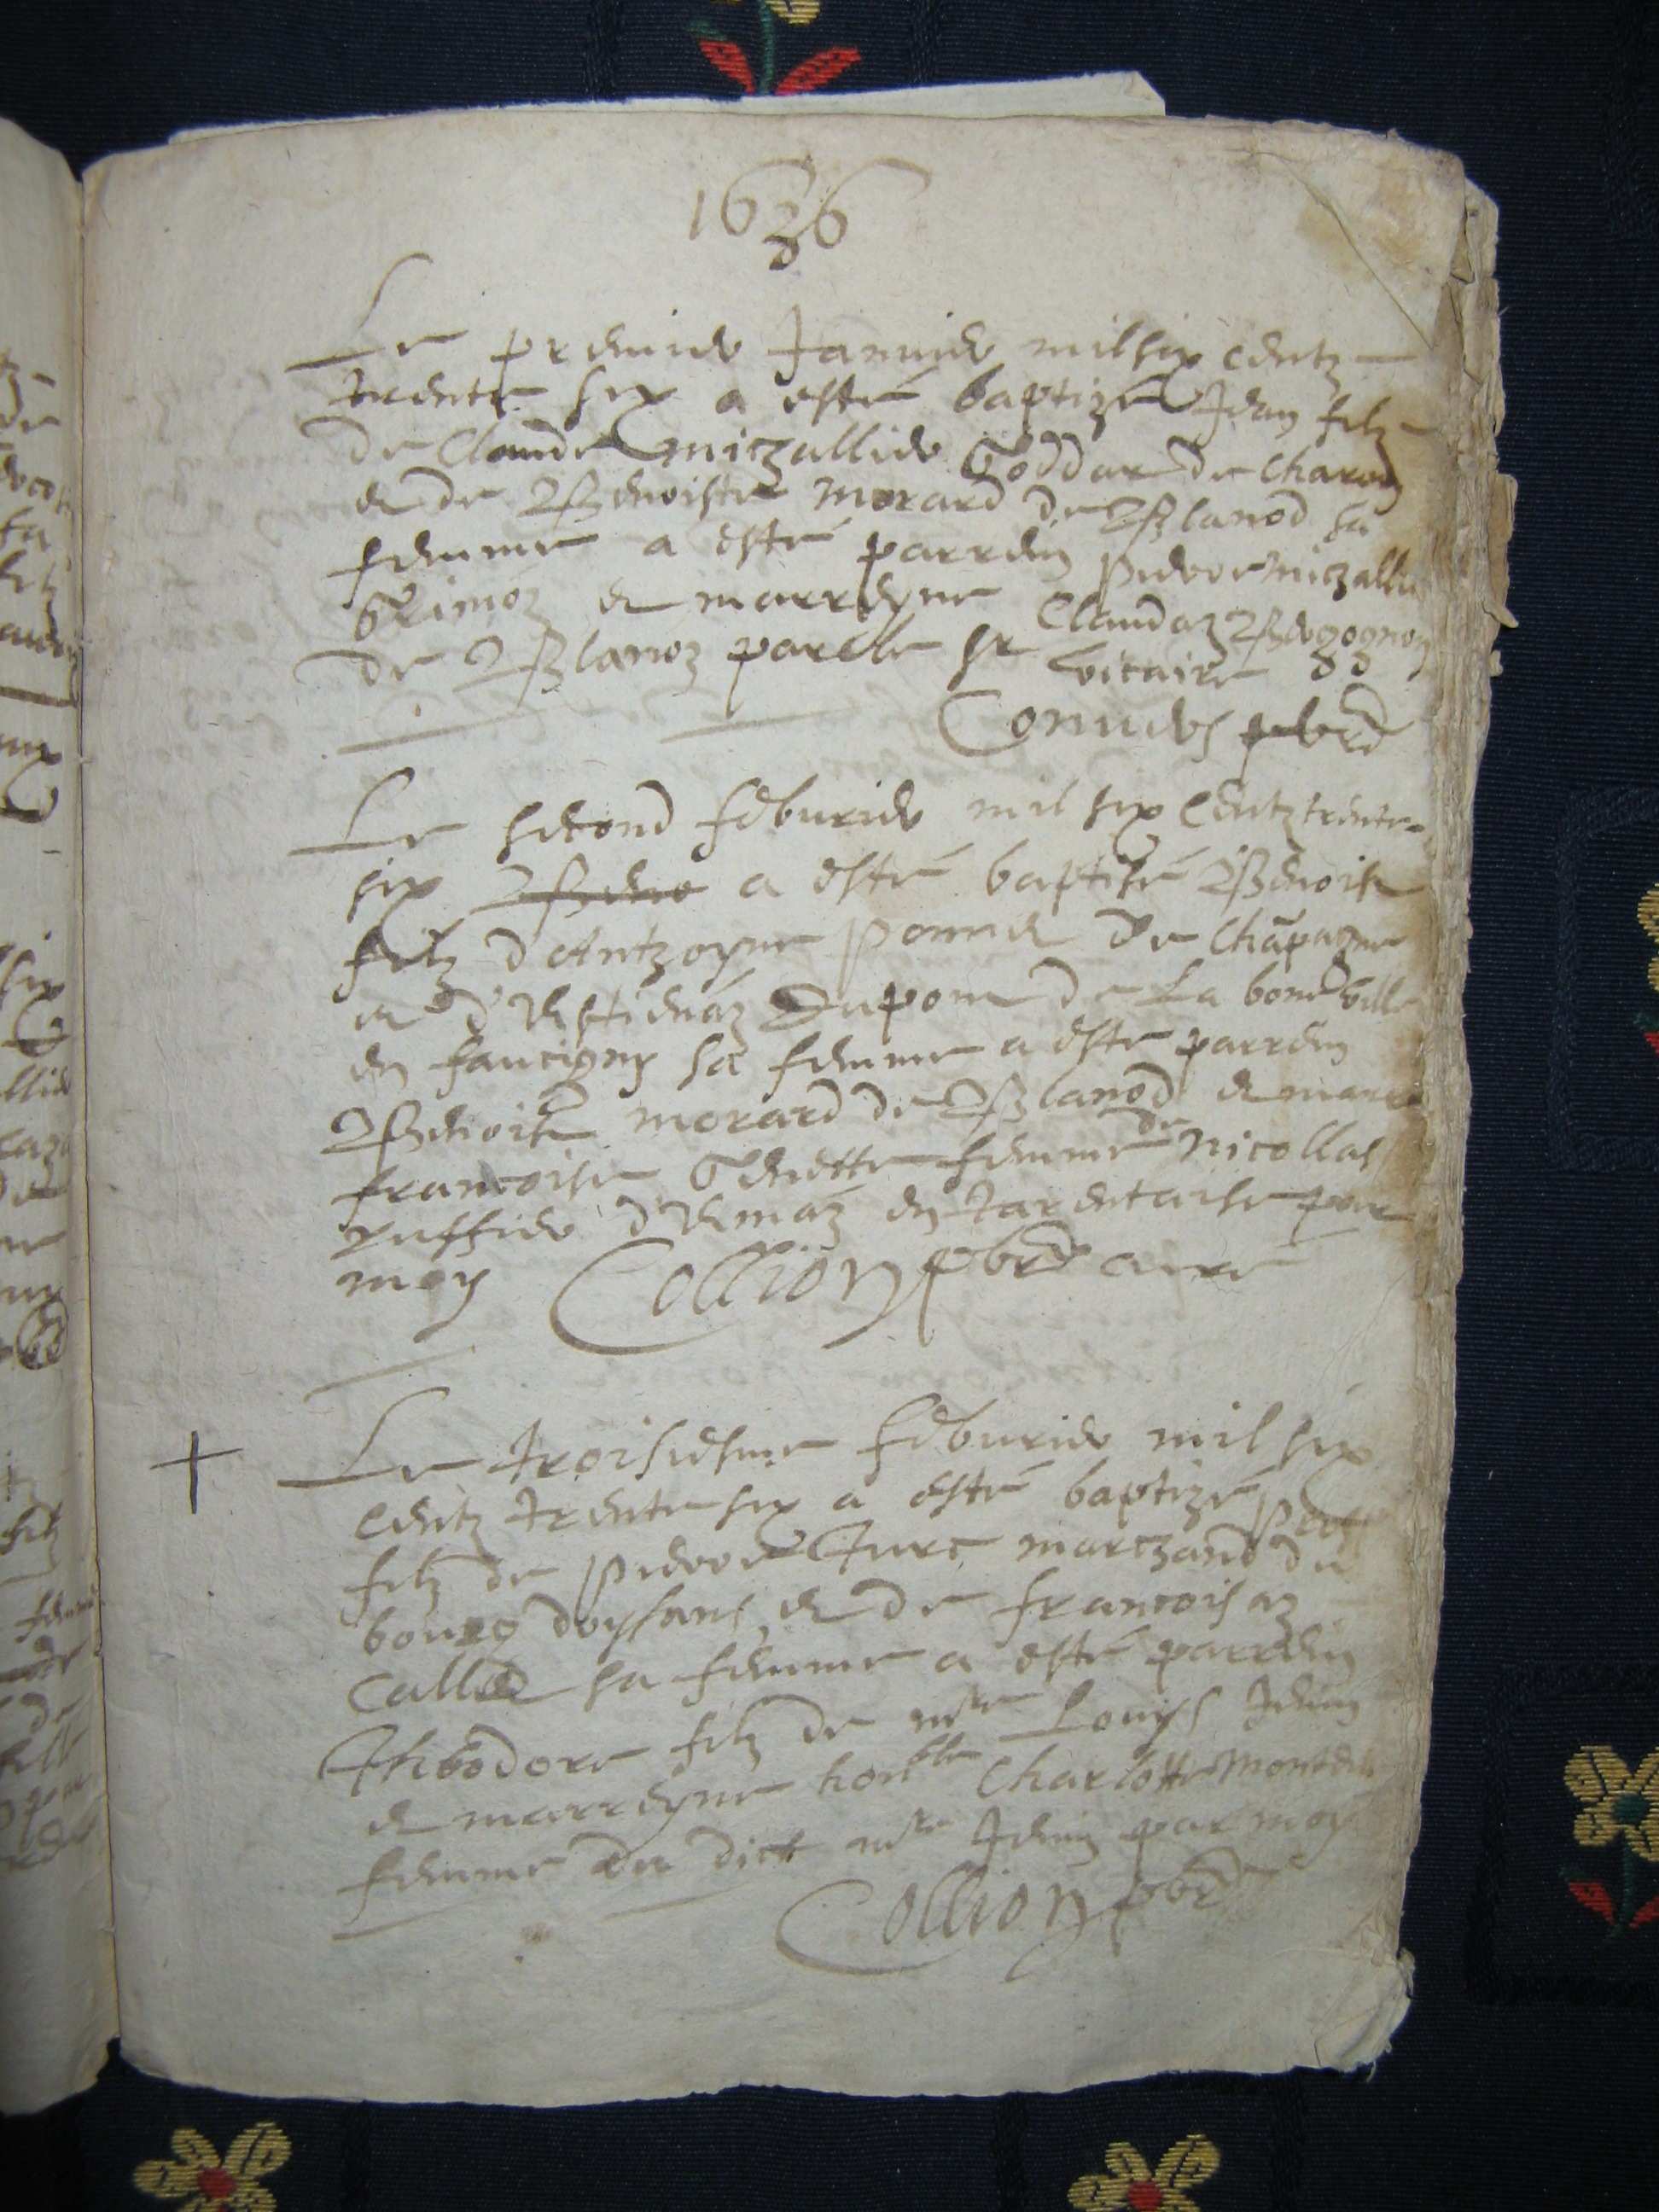 1636
Le premier Januier mil six centz
trente six a esté baptizé Jean filz
de Claude miczallier Goddar de Charon
et de Benoiste morard de Blanod sa
femme a esté parrein pierre miczallie
Grimoz et marreyne Claudaz Bergognon
de Blanoz par le sr vicaire
Conuers pbre
Le second feburier mil six centz trente
six Beno a esté baptisé Benoist
filz d'Antzoyne ponnet de Chãpagne
et d'Estienaz Dupont de La bone ville
en faucigny sa femme a esté parrein
Benoist morard de Blanod et marre
francoise Genette femme de nicollas
ruffier d'Emaz en tarentaise par
moy Collion pbre cure
+
Le troisiesme feburier mil six
centz trente six a esté baptizé
filz de pierre Turc marczand du
bourg doysans et de francoisaz
Callet sa femme a esté parrein
Theodore filz de mre Louys
et marreyne honble Charlotte
femme du dict mre par moy
Collion pbre